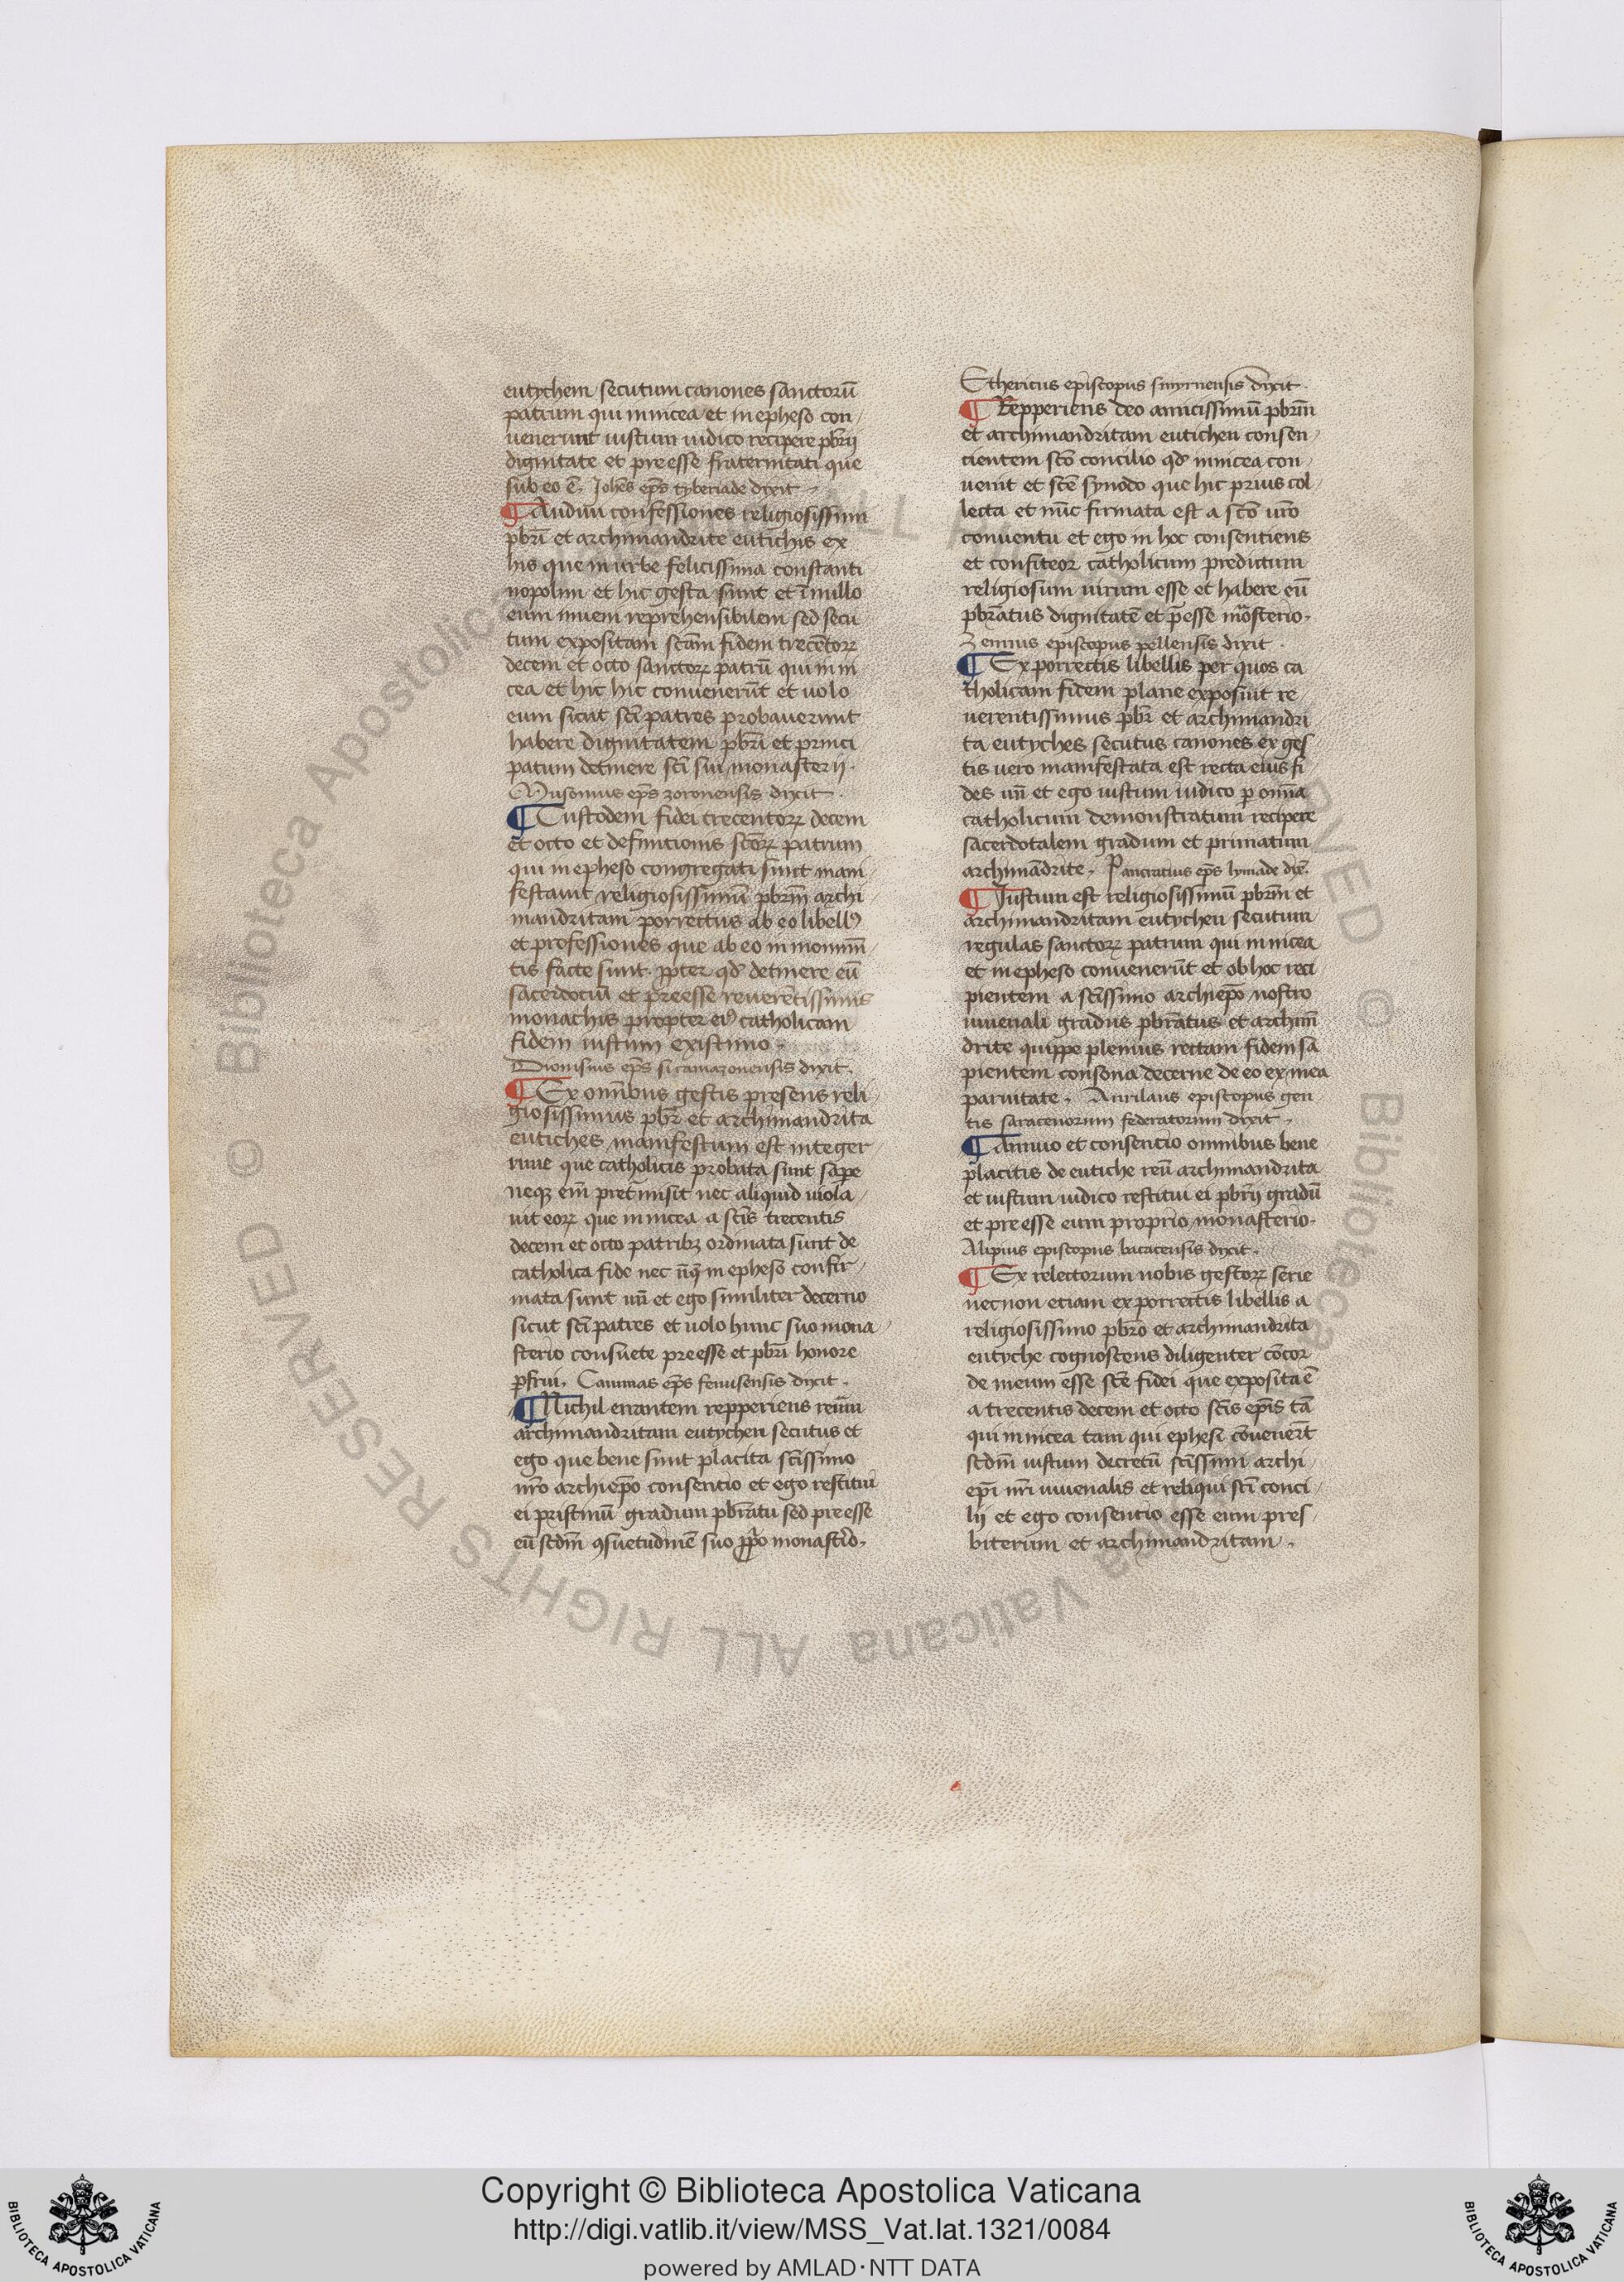 eutychem secutum canones sanctorū
patrum qui in nicea et in epheso con
uenerunt iustum iudico recipere pbrij
dignitate et pre esse fraternitati que
sub eo ē. Johēs ep̄s tyberiade dixit
¶ Audiui confessiones religiosissimi
pbri et archimandrite eutichis ex
his que in urbe felicissima constanti
nopolim et hic gesta sunt et ī nullo
eum inueni reprehensibilem sed secu
tum expositam scām fidem trecētorꝝ
decem et octo sanctorꝝ patrū qui in ni
cea et hic hic conuenerūt et uolo
eum sicut scī patres probauerunt
habere dignitatem pbri et princi
patum detinere scī sui monasterij.
Musonius ep̄s zoronensis dixit.
¶ Custodem fidei trecentorꝝ decem
et octo et definitionis scōrꝝ patrum
qui in epheso congregati sunt mani
festauit religiosissimū pbrm archi
mandritam porrectus ab eo libellꝰ
et professiones que ab eo in monim̄
tis facte sunt. ꝓpter qd̄ detinere eū
sacerdociū et preesse reuerētissimis
monachis propter eiꝰ catholicam
fidem iustum existimo.
Dionisius ep̄s sicamazonensis dixit.
¶ Ex om̄ibus gestis presens reli
giosissimus pbr et archimandrita
eutiches manifestum est integer
rime que catholicis probata sunt sape
neqꝫ em̄ pret̄misit nec aliquid uiola
uit eorꝝ que in nicea a scīs trecentis
decem et octo patribꝫ ordinata sunt de
catholica fide nec ūqꝫ in epheso confir
mata sunt uñ et ego similiter decerno
sicut scī patres et uolo hunc suo mona
sterio consuete preesse et pbri honore
ꝑfrui. Caiumas ep̄s fenusensis dixit.
¶ Nichil errantem repperiens reūm
archimandritam eutychen secutus et
ego que bene sunt placita scīssimo
nr̄o archiep̄o consentio et ego restitui
ei pristinū gradum pbrātu sed preesse
eū scdm̄ ꝯsuetudinē suo ꝓp̄o monastīo.
Ethericus episcopus smyrnensis dixit.
¶ Repperiens deo amicissimū pbrm
et archimandritam eutichen consen
cientem scō concilio qd̄ in nicea con
uenit et scē synodo que hic prius col
lecta et nūc firmata est a scō uro
conuentu et ego in hoc consentiens
et confiteor catholicum predictum
religiosum uirum esse et habere eū
pbrātus dignitatē et p̄esse mōsterio.
Zennus episcopus pellensis dixit.
¶ Ex porrectis libellis per quos ca
tholicam fidem plane exposuit re
uerentissimus pbr et archimandri
ta eutyches secutus canones ex ges
tis uero manifestata est recta eius fi
des uñ et ego iustum iudico ꝑ omīa
catholicum demonstratum recipere
sacerdotalem gradum et primatum
archimādrite. Pancratius ep̄s lyuiade dix̄.
¶ Iustum est religiosissimū pbrm et
archimandritam eutychen secutum
regulas sanctorꝝ patrum qui in nicea
et in epheso conuenerūt et ob hoc reci
pientem a scīssimo archiep̄o nostro
iuuenali gradus pbrātus et archim̄
drite quippe plenius rectam fidem sa
pientem consona decerne de eo ex mea
paruitate. Aurilaus episcopus gen
tis saracenorum federatorum dixit.
¶ Annuo et consentio omnibus bene
placitis de eutiche reū archimandrita
et iustum iudico restitui ei pbrij gradū
et pre esse eum proprio monasterio.
Alipius episcopus bacacensis dixit.
¶ Ex relectorum nobis gestorꝝ serie
necnon etiam ex porrectis libellis a
religiosissimo pbro et archimandrita
eutyche cognoscens diligenter cōcor
de meum esse scē fidei que exposita ē
a trecentis decem et octo scīs ep̄is tā
qui in nicea tam qui ephesi cōuenerūt
scdm̄ iustum decretū scīssimi archi
ep̄i nr̄i iuuenalis et reliqui scī conci
lij et ego consentio esse eum pres
biterum et archimandritam.
Copyright © Biblioteca Apostolica Vaticana
http://digi.vatlib.it/view/MSS_Vat.lat.1321/0084
powered by AMLAD·NTT DATA